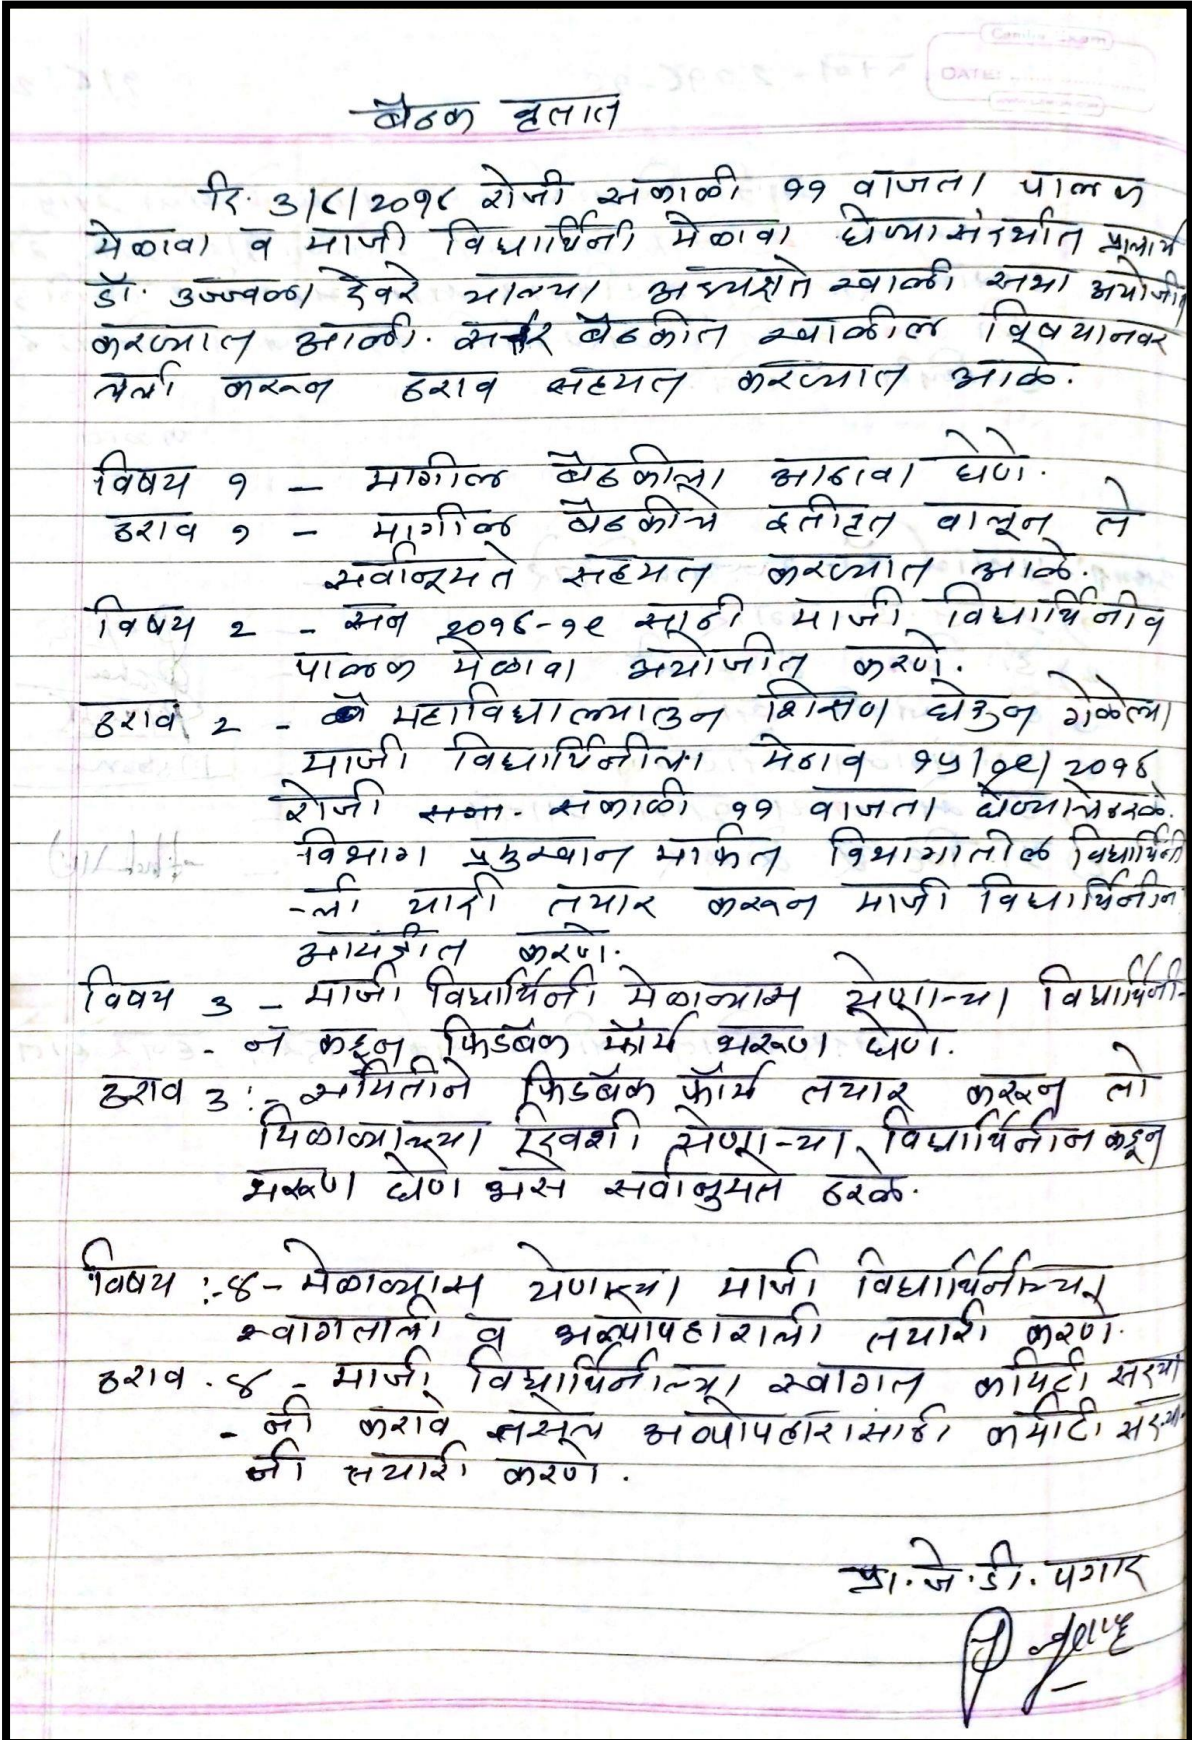 बैठक वृतात
दि. ३/८/२०१८ रोजी सकाळी ११ वाजता पालक
मेळावा व माजी विद्यार्थिनी मेळावा घेण्यासंदर्भात प्राचार्य
डॉ. उज्ज्वला देवरे याच्या अध्यक्षते खाली सभा अयोजीत
करण्यात आली. सदर बैठकीत खालील विषयानवर
चर्चा करून ठराव सहमत करण्यात आले.
विषय १ – मागील बैठकीचा आढावा घेणे.
ठराव १ – मागील बैठकीचे इतीवृत वाचून ते
सर्वानूमते सहमत करण्यात आले.
विषय २ – सन २०१८-१९ साठी माजी विद्यार्थिनी व
पालक मेळावा अयोजीत करणे.
ठराव २ – महाविद्याल्यातुन शिक्षण घेऊन गेलेल्या
माजी विद्यार्थिनीचा मेठाव १५/०९/२०१८
रोजी सकाळी ११ वाजता घेण्याचे ठरले.
विभाग प्रमुखान मार्फत विभागातील विद्यार्थिनी
-ची यादी तयार करून माजी विद्यार्थिनीन
आमंत्रीत करणे.
विषय ३ – माजी विद्यार्थिनी मेळाव्यास येणाऱ्या विद्यार्थिनी-
- न कडून फिडबॅक फॉर्म भरूण घेणे.
ठराव ३ :- समितीने फिडबॅक फॉर्म तयार करून तो
मिळाव्याच्या दिवशी येणाऱ्या विद्यार्थिनीन कडून
भरूण घेणे असे सर्वानुमते ठरले.
विषय :-४- मेळाव्यास येणाऱ्या माजी विद्यार्थिनीच्या
स्वागताची व अल्पोपहाराची तयारी करणे.
ठराव . ४ – माजी विद्यार्थिनीच्या स्वागत कमिटी सदस्या
- नी करावे तसेच अल्पोपहारासाठी कमीटी सदस्या-
नी तयारी करणे.
प्रा. जे. डी. पगार